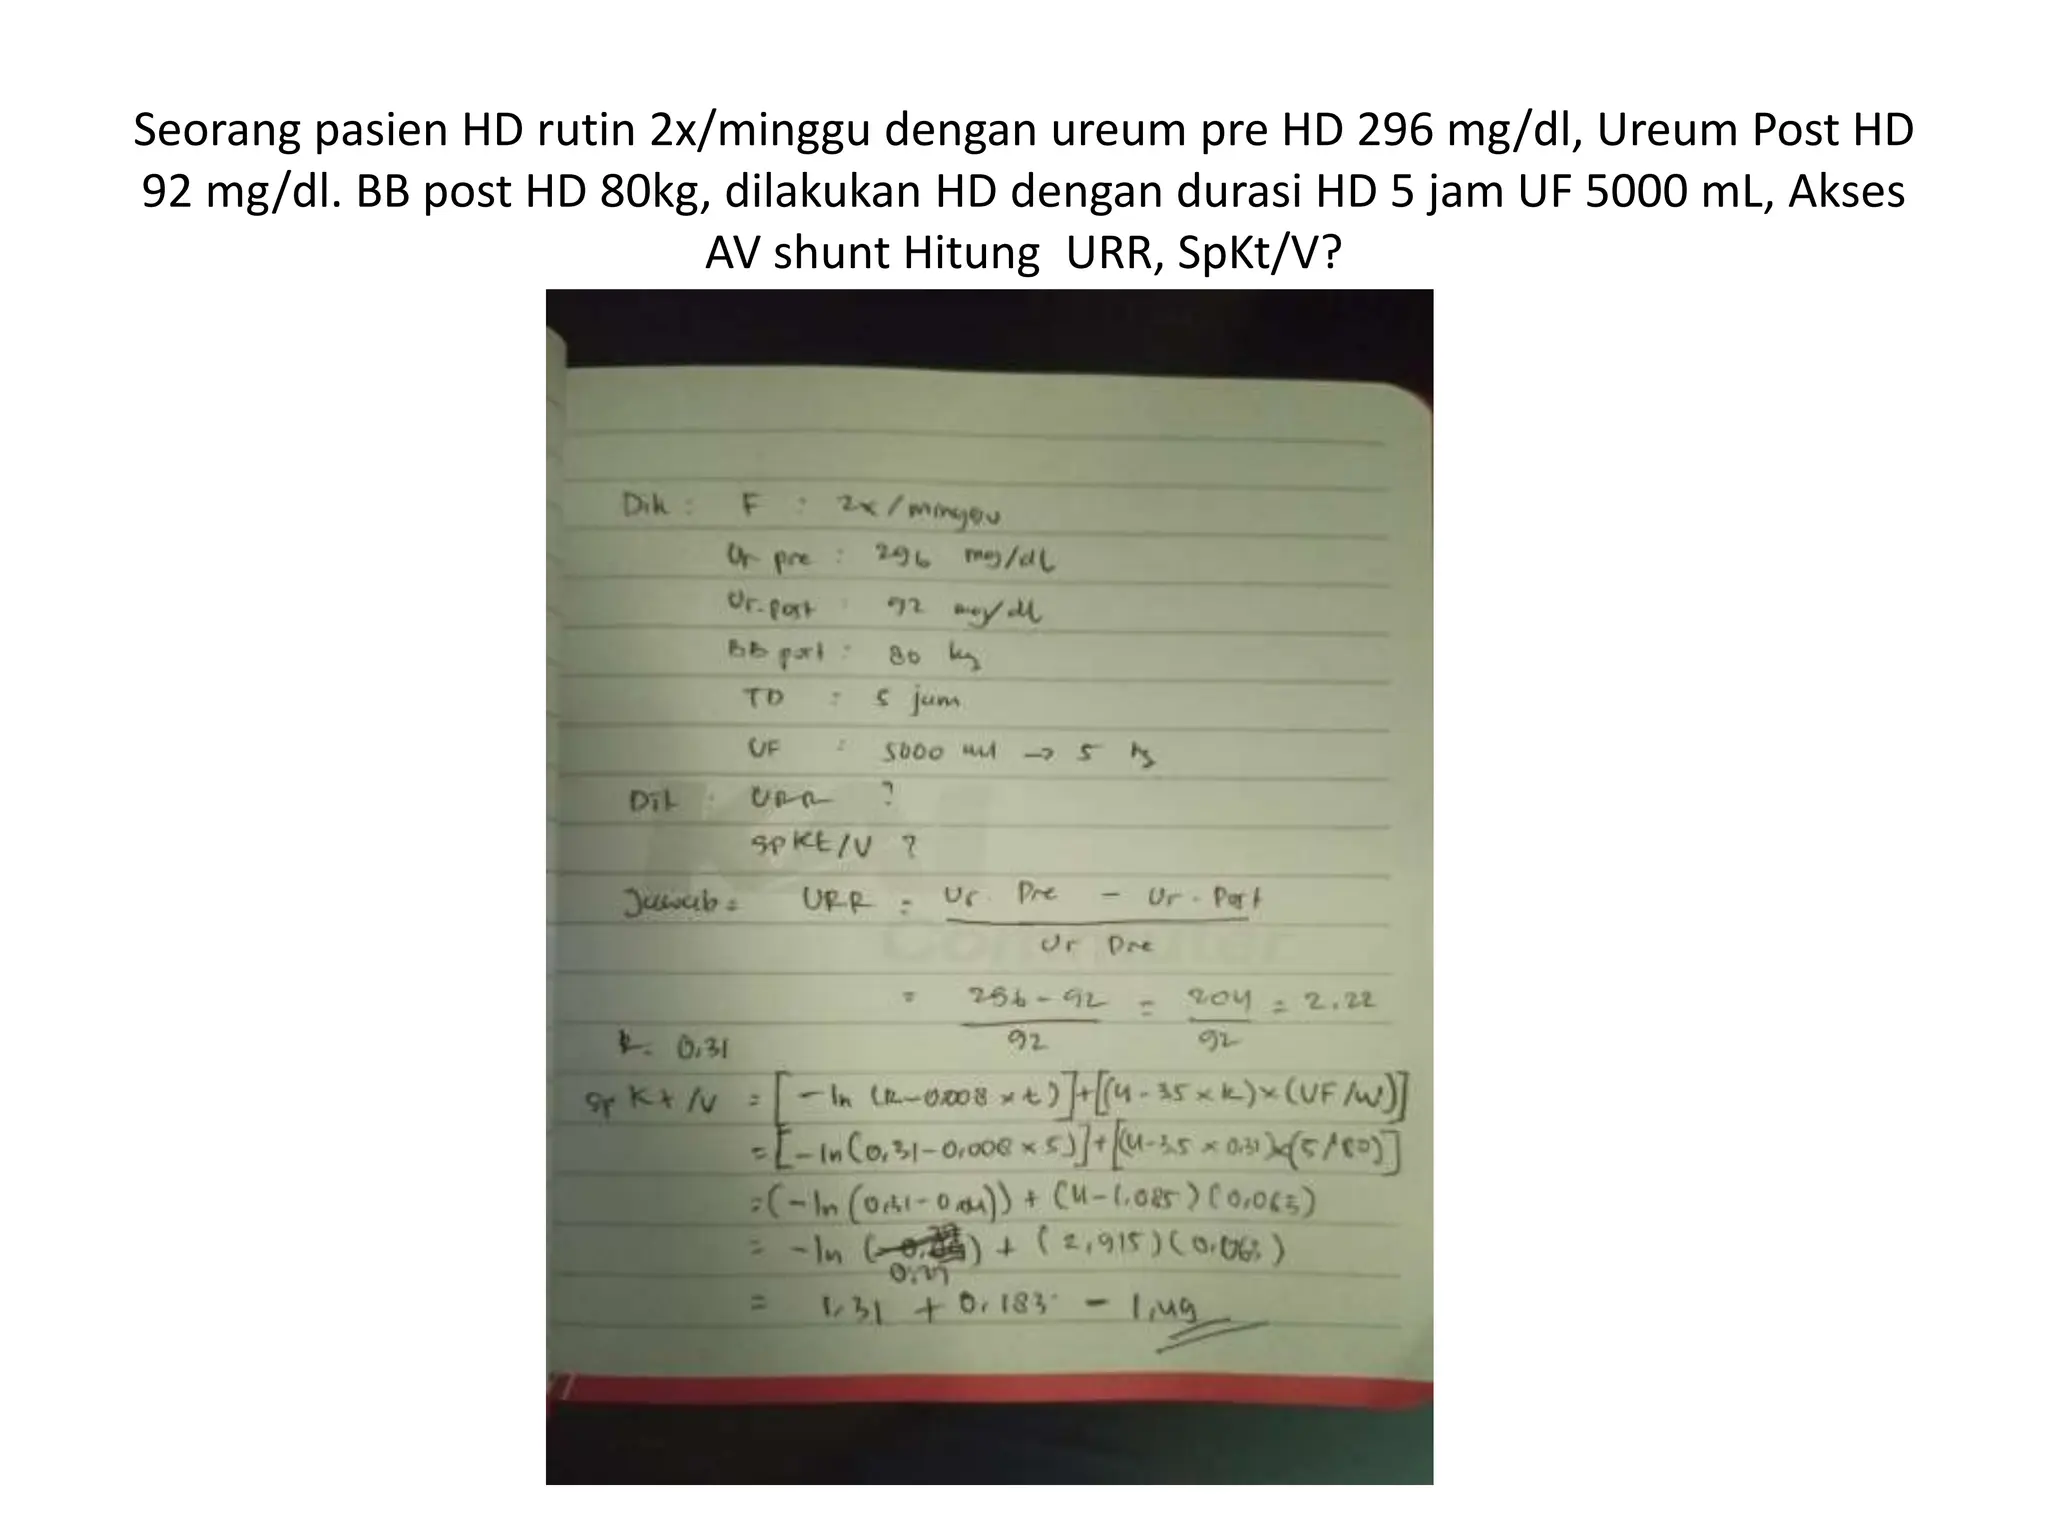 Seorang pasien HD rutin 2x/minggu dengan ureum pre HD 296 mg/dl, Ureum Post HD
92 mg/dl. BB post HD 80kg, dilakukan HD dengan durasi HD 5 jam UF 5000 mL, Akses
AV shunt Hitung URR, SpKt/V?
Dik : F : 2x/minggu
Ur pre : 296 mg/dL
Ur.post : 92 mg/dL
BB post : 80 kg
TD : 5 jam
UF : 5000 ml → 5 kg
Dit : URR ?
SPKt/V ?
Jawab = URR = Ur. Pre - Ur. Post
Ur Pre
= 296-92 = 204 = 2.22
92 92
R. 0,31
Sp Kt/V = [-ln (R-0,008 x t)]+[(4-3,5 x R)x(UF/W)]
= [-ln(0,31-0,008 x 5)]+[(4-3,5 x 0,31)x(5/80)]
=(-ln(0,31-0,04)) + (4-1,085)(0,063)
= -ln ( ) + (2,915)(0,063)
0,27
= 1,31 + 0,183 = 1,49